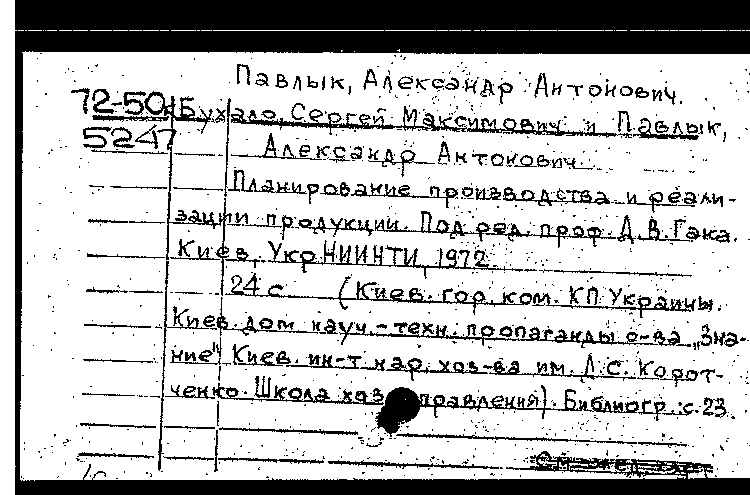 Павлык, Александр Антонович.
72-50
5247
Бухало, Сергей Максимович и Павлык,
Александр Антонович.
Планирование производства и реали-
зации продукции. Под ред. проф. Д.В. Гака.
Киев, УкрНИИНТИ, 1972.
24 с. (Киев. гор. ком. КП Украины.
Киев. дом науч.-техн. пропаганды о-ва „Зна-
ние" Киев. ин-т нар. хоз-ва им. Д.С. Корот-
ченко. Школа хоз. управления). Библиогр.: с. 23.